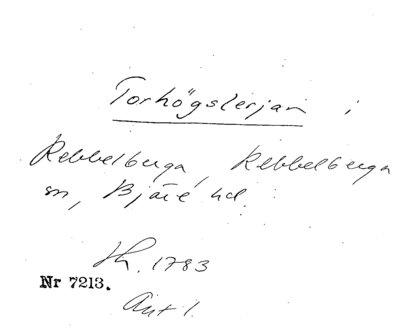 Torhögslerjan i
Rebbelberga, Rebbelberga
sn, Bjäre hd.
Lh. 1783
Nr 7213.
Akt 1.